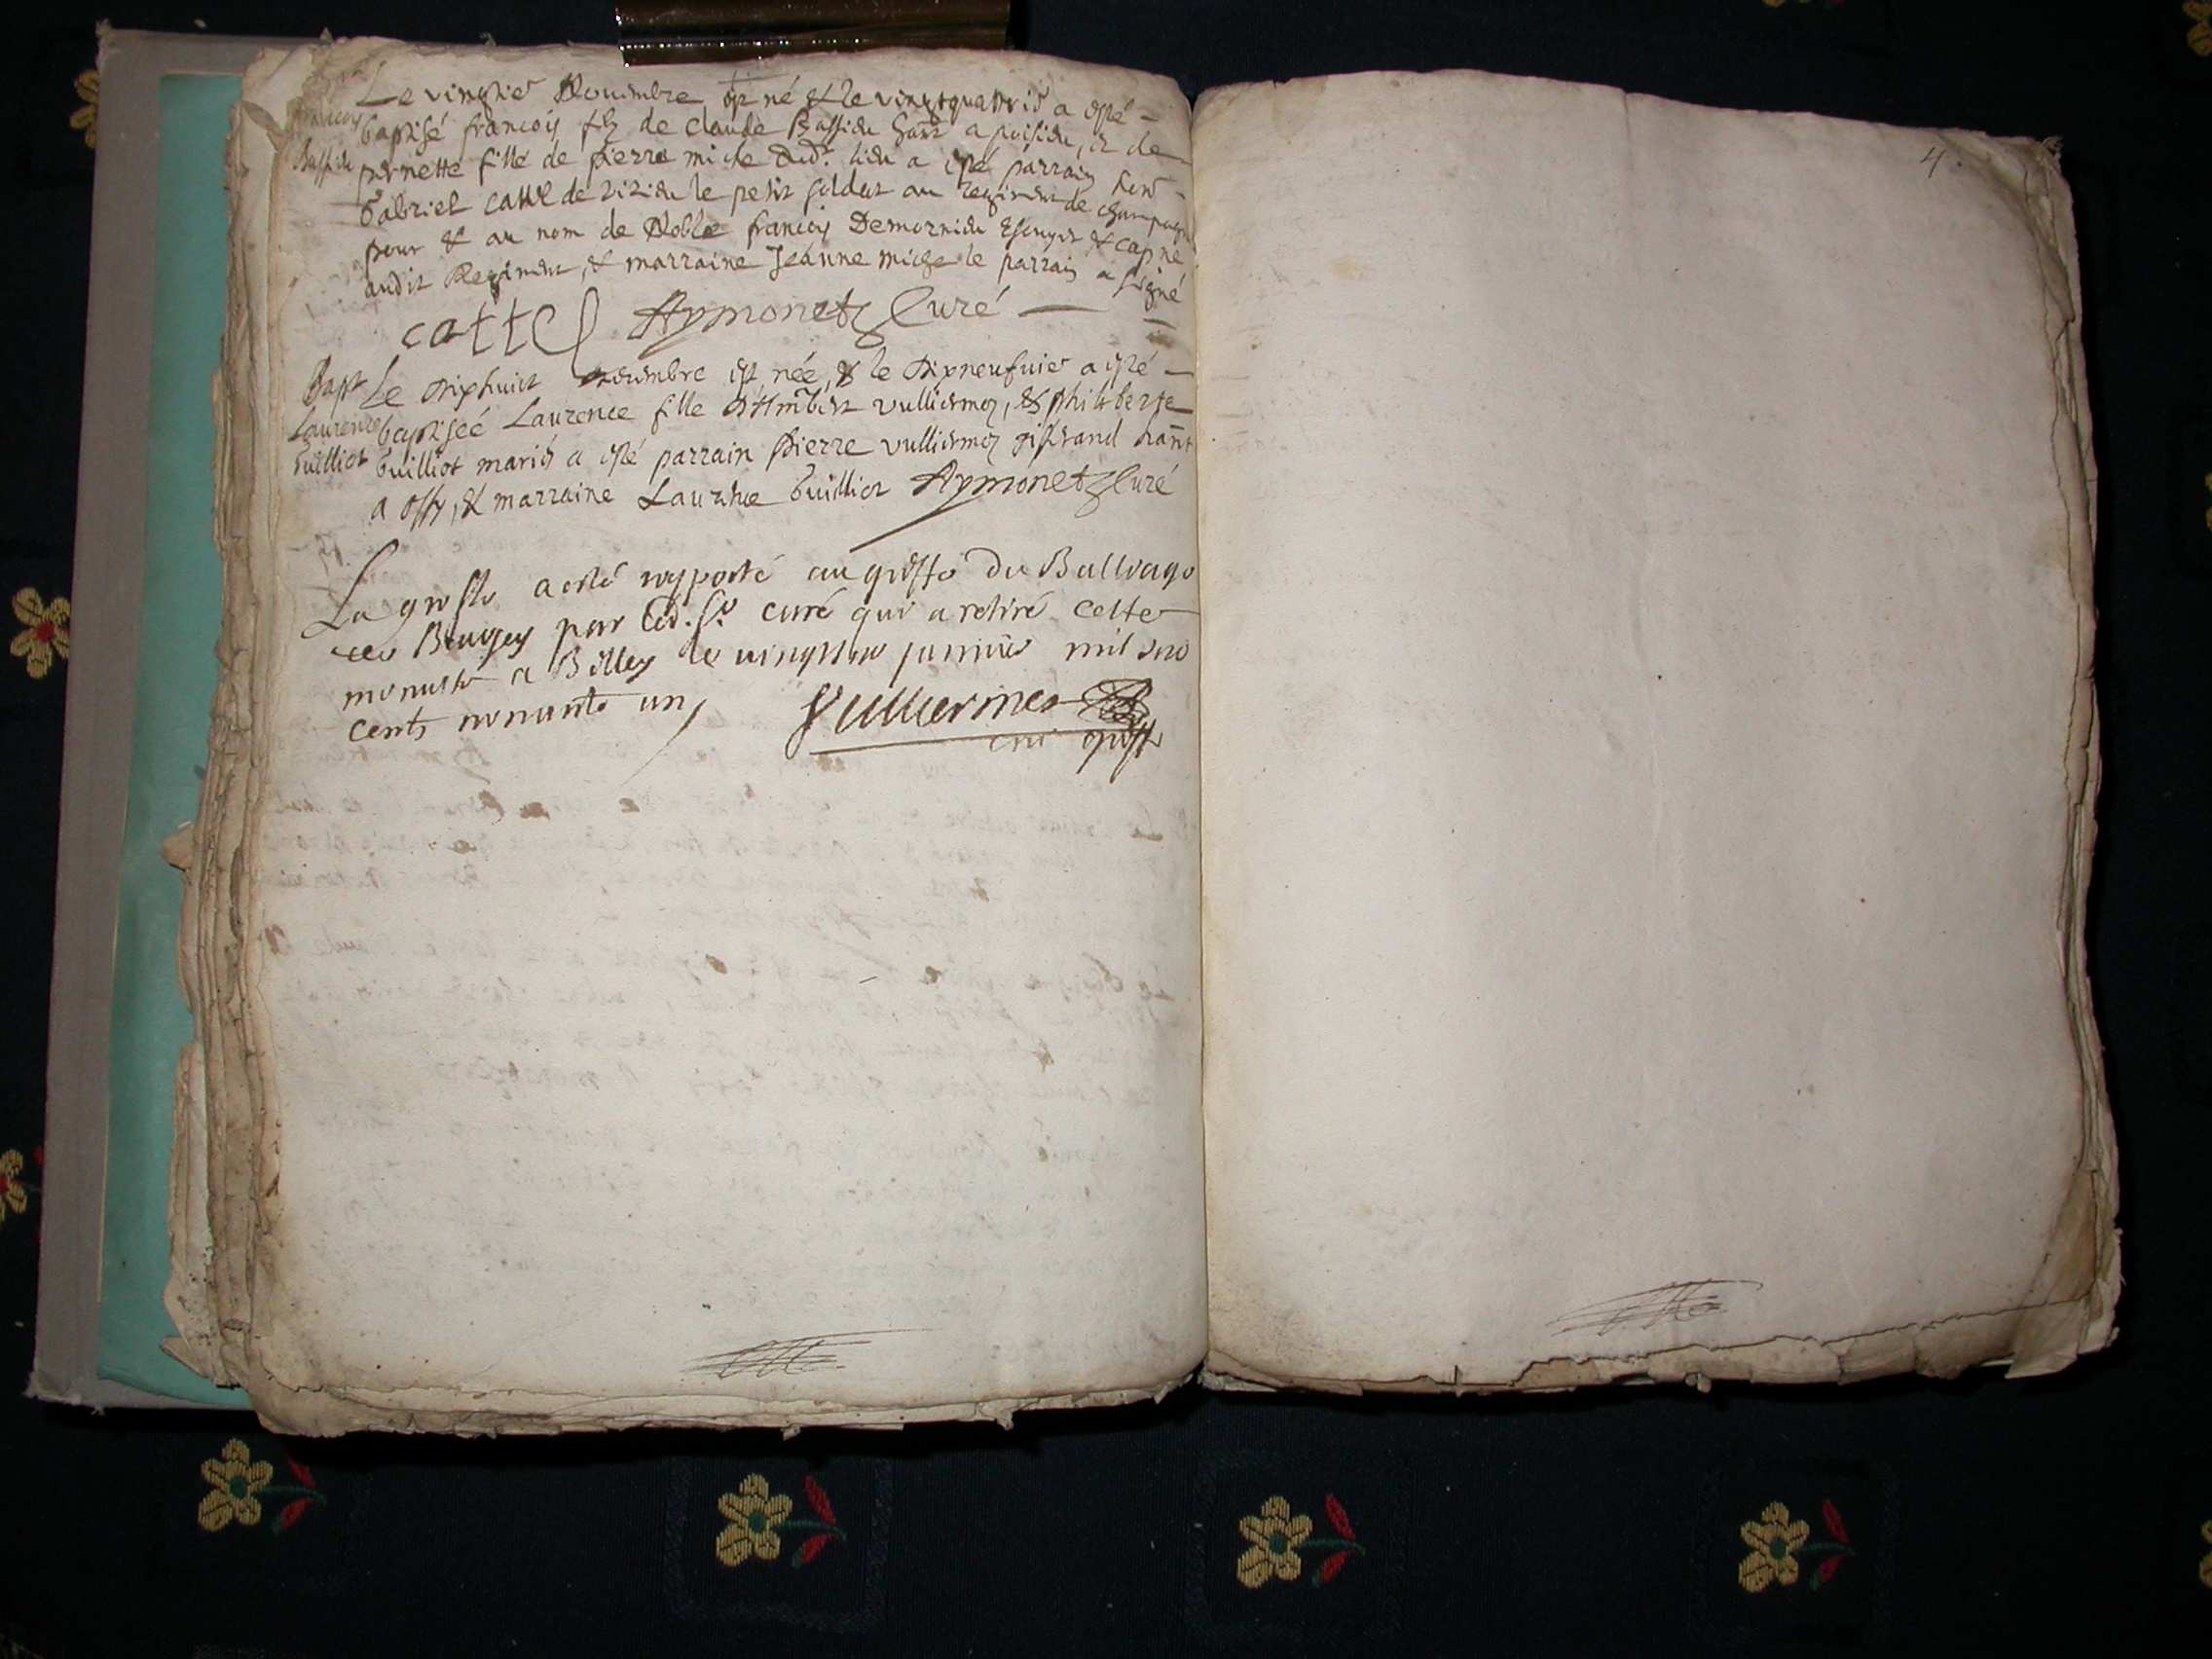 Le vingtie Novembre est né & le vingtquatrie a esté
françois baptisé françois fils de claude Bassieu hant a poisieu, et de
Bassieu pernette fille de pierre miche dud. lieu a esté parrain
Gabriel cattel de le petit soldat au regiment de champagne
pour & au nom de Noble françois Demornieu Escuyer & capne
audit Regiment, & marraine Jeanne miche le parrain a signé
cattel Aymonet Curé
Bapt Le dixhuict decembre est née, & le dixneufvie a esté
Laurence baptisée Laurence fille d'Humbert vulliermoz, & philiberte
Guilliot mariés a esté parrain pierre vulliermoz hant
a & marraine Laurence Guilliot Aymonet Curé
La grosse a esté rapporté au greffe du Balliage
de Beugey par led. Sr. curé qui a retiré cette
minutte a Belley le janvier mil six
cents nonante un
Vulliermes
greff
4.